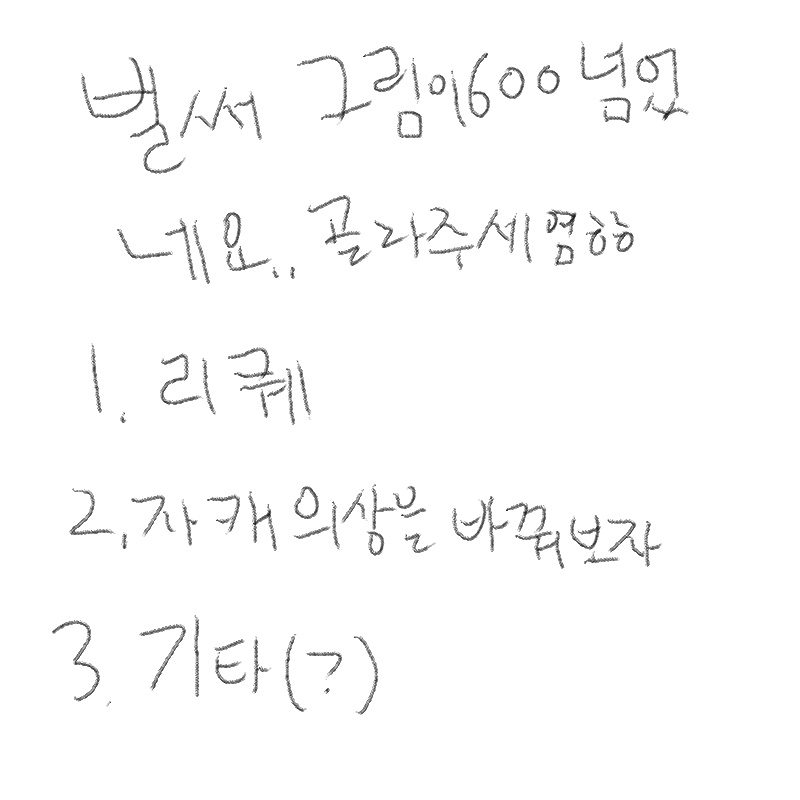 벌써 그림이600넘었
네요.. 골라주세염항항
1. 리퀘
2. 자캐 의상을 바꿔보자
3. 기타(?)